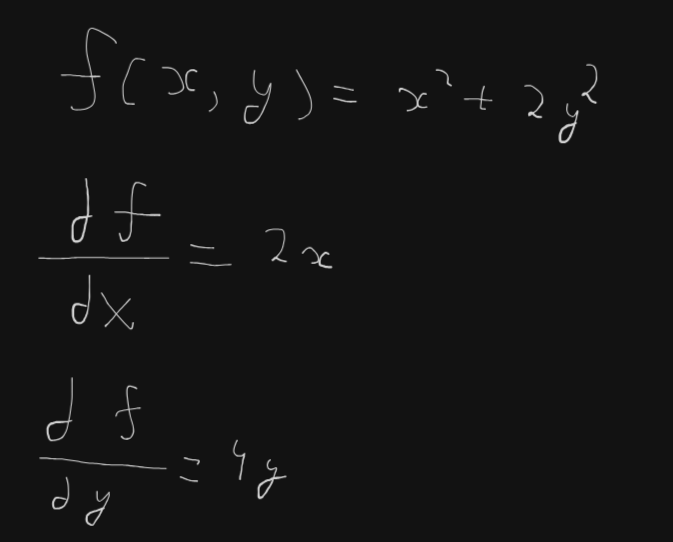 f(x, y) = x² + 2y²
df/dx = 2x
df/dy = 4y